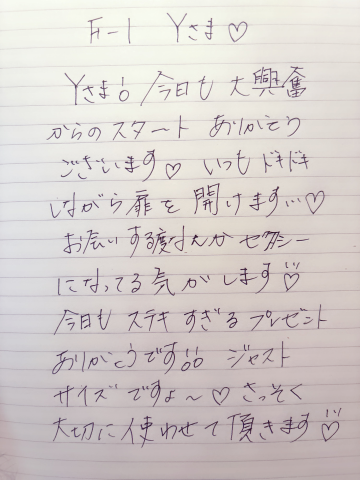 F-1 Yさま♡
Yさま! 今日も大興奮
からのスタート ありがとう
ございます♡ いつもドキドキ
しながら扉を開けます…♡
お会いする度なんか セクシー
になってる気がします♡
今日も ステキ すぎる プレゼント
ありがとうです!! ジャスト
サイズですょ〜♡ さっそく
大切に使わせて頂きます♡